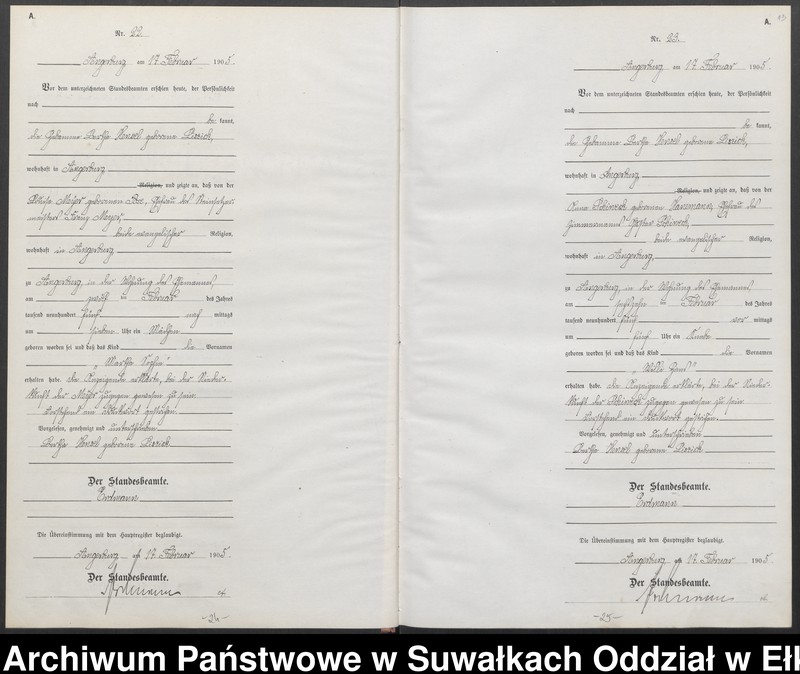 A.
Nr. 22.
Angerburg am 17. Februar 1905.
Vor dem unterzeichneten Standesbeamten erschien heute, der Persönlichkeit
nach
be kannt,
die Hebamme Bertha geborene
wohnhaft in Angerburg
Religion, und zeigte an, daß von der
Meyer geborenen Ehefrau des
meisters Franz Meyer
beide evangelischer Religion,
wohnhaft in Angerburg
zu Angerburg, in der Wohnung des Ehemannes,
am zwölften Februar des Jahres
tausend neunhundert fünf nach mittags
um sieben Uhr ein Mädchen
geboren worden sei und daß das Kind die Vornamen
„Martha Sophie“
erhalten habe. Die Anzeigende erklärte, bei der Nieder-
kunft der Meyer zugegen gewesen zu sein
Vorstehend ein Druckwort gestrichen.
Vorgelesen, genehmigt und unterschrieben
Bertha geborene
Der Standesbeamte.
Erdmann
Die Übereinstimmung mit dem Hauptregister beglaubigt.
Angerburg am 17. Februar 1905.
Der Standesbeamte.
Erdmann
-24-
A.
Nr. 23.
Angerburg am 17. Februar 1905.
Vor dem unterzeichneten Standesbeamten erschien heute, der Persönlichkeit
nach
be kannt,
die Hebamme Bertha geborene
wohnhaft in Angerburg
Religion, und zeigte an, daß von der
geborenen Ehefrau des
Zimmermanns
beide evangelischer Religion,
wohnhaft in Angerburg,
zu Angerburg, in der Wohnung des Ehemannes,
am sechzehnten Februar des Jahres
tausend neunhundert fünf vor mittags
um fünf Uhr ein Knabe
geboren worden sei und daß das Kind die Vornamen
erhalten habe. Die Anzeigende erklärte, bei der Nieder-
kunft der zugegen gewesen zu sein
Vorstehend ein Druckwort gestrichen.
Vorgelesen, genehmigt und unterschrieben
Bertha geborene
Der Standesbeamte.
Erdmann
Die Übereinstimmung mit dem Hauptregister beglaubigt.
Angerburg am 17. Februar 1905
Der Standesbeamte.
Erdmann
-25-
Archiwum Państwowe w Suwałkach Oddział w Ełk